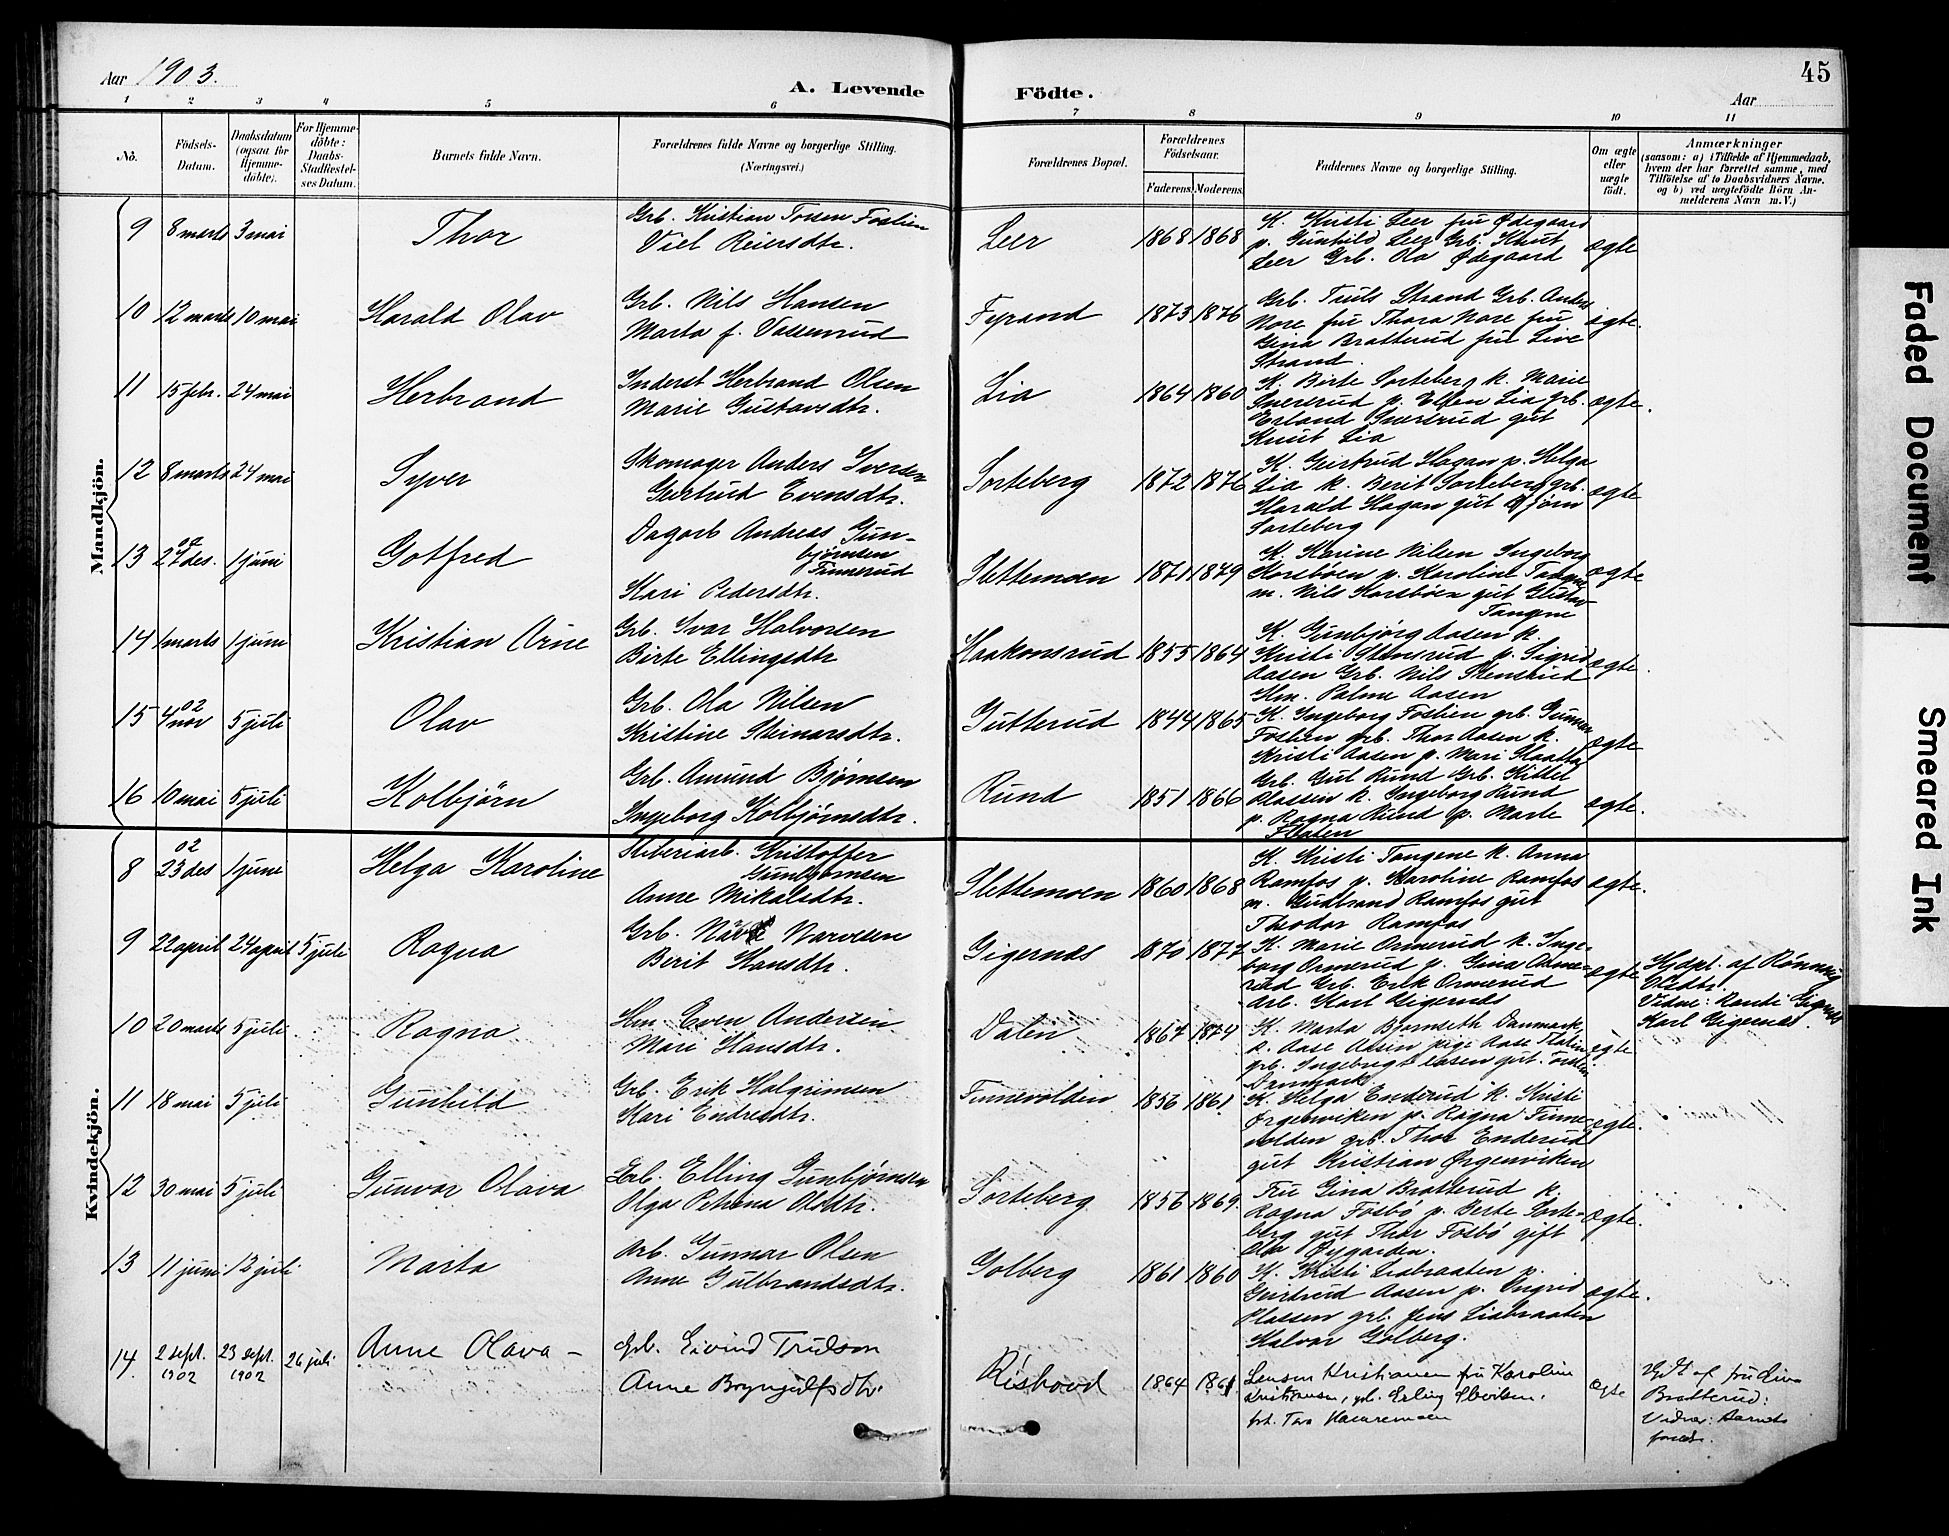 Aar 1903.
A. Levende Födte.
45
Aar
1 2 3 4 5 6 7 8 9 10 11
No.
Födsels-Datum.
Daabsdatum (ogsaa for Hjemme-döbte).
For Hjemme-döbte: Daabs-Stadfæstel-ses Datum.
Barnets fulde Navn.
Forældrenes fulde Navne og borgerlige Stilling. (Næringsvei.)
Forældrenes Bopæl.
Forældrenes Födselsaar.
Faderens. Moderens.
Faddernes Navne og borgerlige Stilling.
Om ægte eller uægte födt.
Anmærkninger
(saasom: a) i Tilfælde af Hjemmedaab, hvem der har forrettet samme, med Tilföielse af to Daabsvidners Navne, og b) ved uægtefödte Börn An-melderens Navn m.V.)
Mandkjön.
9 8 marts 3 mai Thor Grb. Kristian Tossen Foslien
Viel Reiersdtr. Leer 1868 1868 K. Kristi Leer fru Ødegaard
p. Gunhild Leer Grb. Knut
Leer Grb. Ola Ødegaard ægte
10 12 marts 10 mai Harald Olav Grb. Nils Hansen
Marta f. Vassenrud Fyrand 1873 1876 Grb. Truls Strand Grb. Anders
Nore fru Thora Nore fru
Gina Bratterud fru Live
Strand. ægte.
11 15 febr. 24 mai Herbrand Inderst Herbrand Olsen
Marie Gustavsdtr. Lia 1864 1860 K. Birte Sorteberg k. Marie
p. Lia grb.
Erland gut
Knut Lia ægte.
12 8 marts 24 mai Syver Skomager Anders Iversen
Gertrud Evensdtr. Sorteberg 1872 1876 K. Geirtrud Hagan p. Helga
Lia k. Berit Sorteberg grb.
Harald Hagan gut Bjørn
Sorteberg ægte
13 02 27 des. 1 juni Gotfred Dagarb Andreas Gun-
bjørnsen
Tinnerud
Kari Pedersdtr. Slettemoen 1871 1879 K. Karine Nilsen Ingeborg
Korsbøen p. Karoline Tangne
m. Nils Korsbøen gut Gustav
Tangne ægte
14 1 marts 1 juni Kristian Arne Grb. Ivar Halvorsen
Birte Ellingsdtr Haakonsrud 1855 1864 K. Gunbjørg Aasen k.
Kristi Stensrud p. Sigrid
Aasen Grb. Nils Stensrud
Hm. Palme Aasen ægte.
15 02 4 nov 5 juli Olav Grb. Ola Nilsen
Kristine Steinarsdtr. Gutterud 1844 1865 K. Ingeborg Foslien grb. Gunnar
Foslien grb. Thor Aasen k.
Kristi Aasen p. Mari ægte
16 10 mai 5 juli Kolbjörn Grb. Amund Bjørnsen
Ingeborg Kolbjørnsdtr. Rund 1851 1866 Grb. Gul Rund Grb. Kittil
Plassen k. Ingeborg Rund
p. Ragna Rund p. Marte ægte.
Kvindekjön.
8 02 23 des 1 june Helga Karoline Sliberiarb. Kristoffer
Gunbjørnsen
Anne Mikalsdtr. Slettemoen 1860 1868 K. Kristi Tangene k. Anna
Ramfos p. Karoline Ramfos
m. Gudbrand Ramfos gut
Theodor Ramfos ægte.
9 22 april 24 april 5 juli Ragna Grb. Narvesen
Berit Hansdtr. Gigernæs 1870 1877 K. Marie Ormerud k. Inge-
borg Ormerud p. Gina Orme-
rud Grb. Erik Ormerud
Arb. Karl Gigernæs ægte Hjdpt. af Rønnaug
Olsdtr.
Vidne: Randi Gigernæs
Karl Gigernæs.
10 20 marts 5 juli. Ragna Hm Even Andersen
Mari Hansdtr. Dalen 1867 1874 K. Marta Bjørnseth Danmark,
k. Aase Aasen pige Aase
grb. Ingebrigt Aasen gut.
Danmark ægte.
11 18 mai 5 juli Gunhild Grb. Erik Halgrimsen
Kari Endresdtr. Finnevolden 1856 1861 K. Helga Enderud k. Kristi
Ørgenviken p. Ragna Finne-
volden grb. Thor Enderud
gut Kristian Ørgenviken ægte.
12 30 mai 5 juli Gunvor Olava Grb. Elling Gunbjørnsen
Olga Petrina Olsdtr. Sorteberg 1856 1869. Fru Gina Bratterud k.
Ragna Fosbø p. Berte Sorte-
berg gut Thor Fosbø gift
Ola Øygarden. ægte.
13 11 juni 12 juli Marta Arb. Gunnar Olsen
Anne Gulbrandsdtr. Golberg 1861 1860 K. Kristi Liabraaten p.
Geirtrud Aasen p. Ingrid
Plassen grb. Jens Liabraaten
Halvor Golberg. ægte.
14. 2 sept. 1902 23 sept. 1902 26 juli Anne Olava – Grb. Eivind Trulson
Anne Bryngulfsdtr. Rishovd 1864 1861. Lensm Kristiansen fru Karoline
Kristiansen, grb. Erling ægte Hjdt af fru Lina
Bratterud:
Vidner: Barnets
foræld.
Faded Document
Smeared Ink